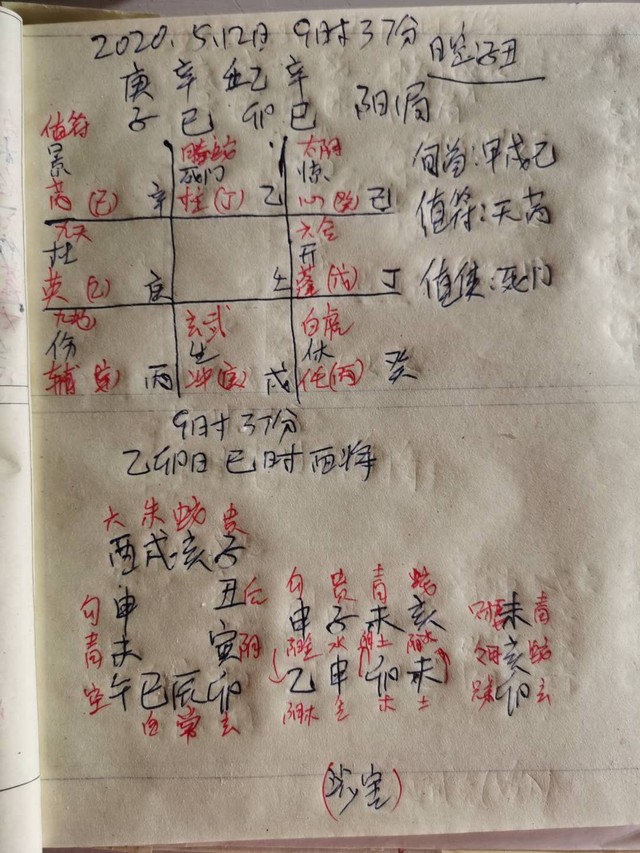 2020.5.12日 9时37分 日空:子丑
庚 辛 乙 辛
子 巳 卯 巳 阳1局
值符 腾蛇 太阴 旬首:甲戌己
景 死门 惊
芮(己) 辛 柱(丁) 乙 心(癸) 己 值符:天芮
九天 六合
杜 开
英(乙) 庚 壬 蓬(戊) 丁 值使:死门
九地 玄武 白虎
伤 生 休
辅(辛) 丙 冲(庚) 戊 任(丙) 癸
9时37分
乙卯日 巳时 酉将
六 朱 蛇 贵
酉 戌 亥 子
勾 申 丑 后 勾 贵 青 蛇
申 子 未 亥 未 青
青 未 寅 阴 水 亥 蛇
空 午 巳 辰 卯 乙 申 卯 未 卯 玄
白 常 玄 阴木 金 木 土